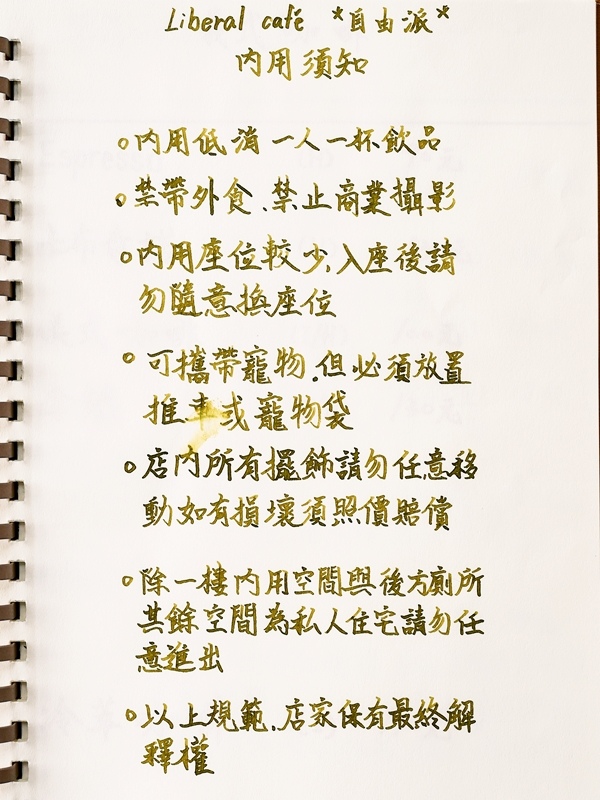 Liberal café *自由派*
內用須知
。內用低消 一人一杯飲品
。禁帶外食、禁止商業攝影
。內用座位較少,入座後請
勿隨意換座位
。可攜帶寵物,但必須放置
推車或寵物袋
。店內所有擺飾請勿任意移
動如有損壞須照價賠償
。除一樓內用空間與後方廁所
其餘空間為私人住宅請勿任
意進出
。以上規範,店家保有最終解
釋權